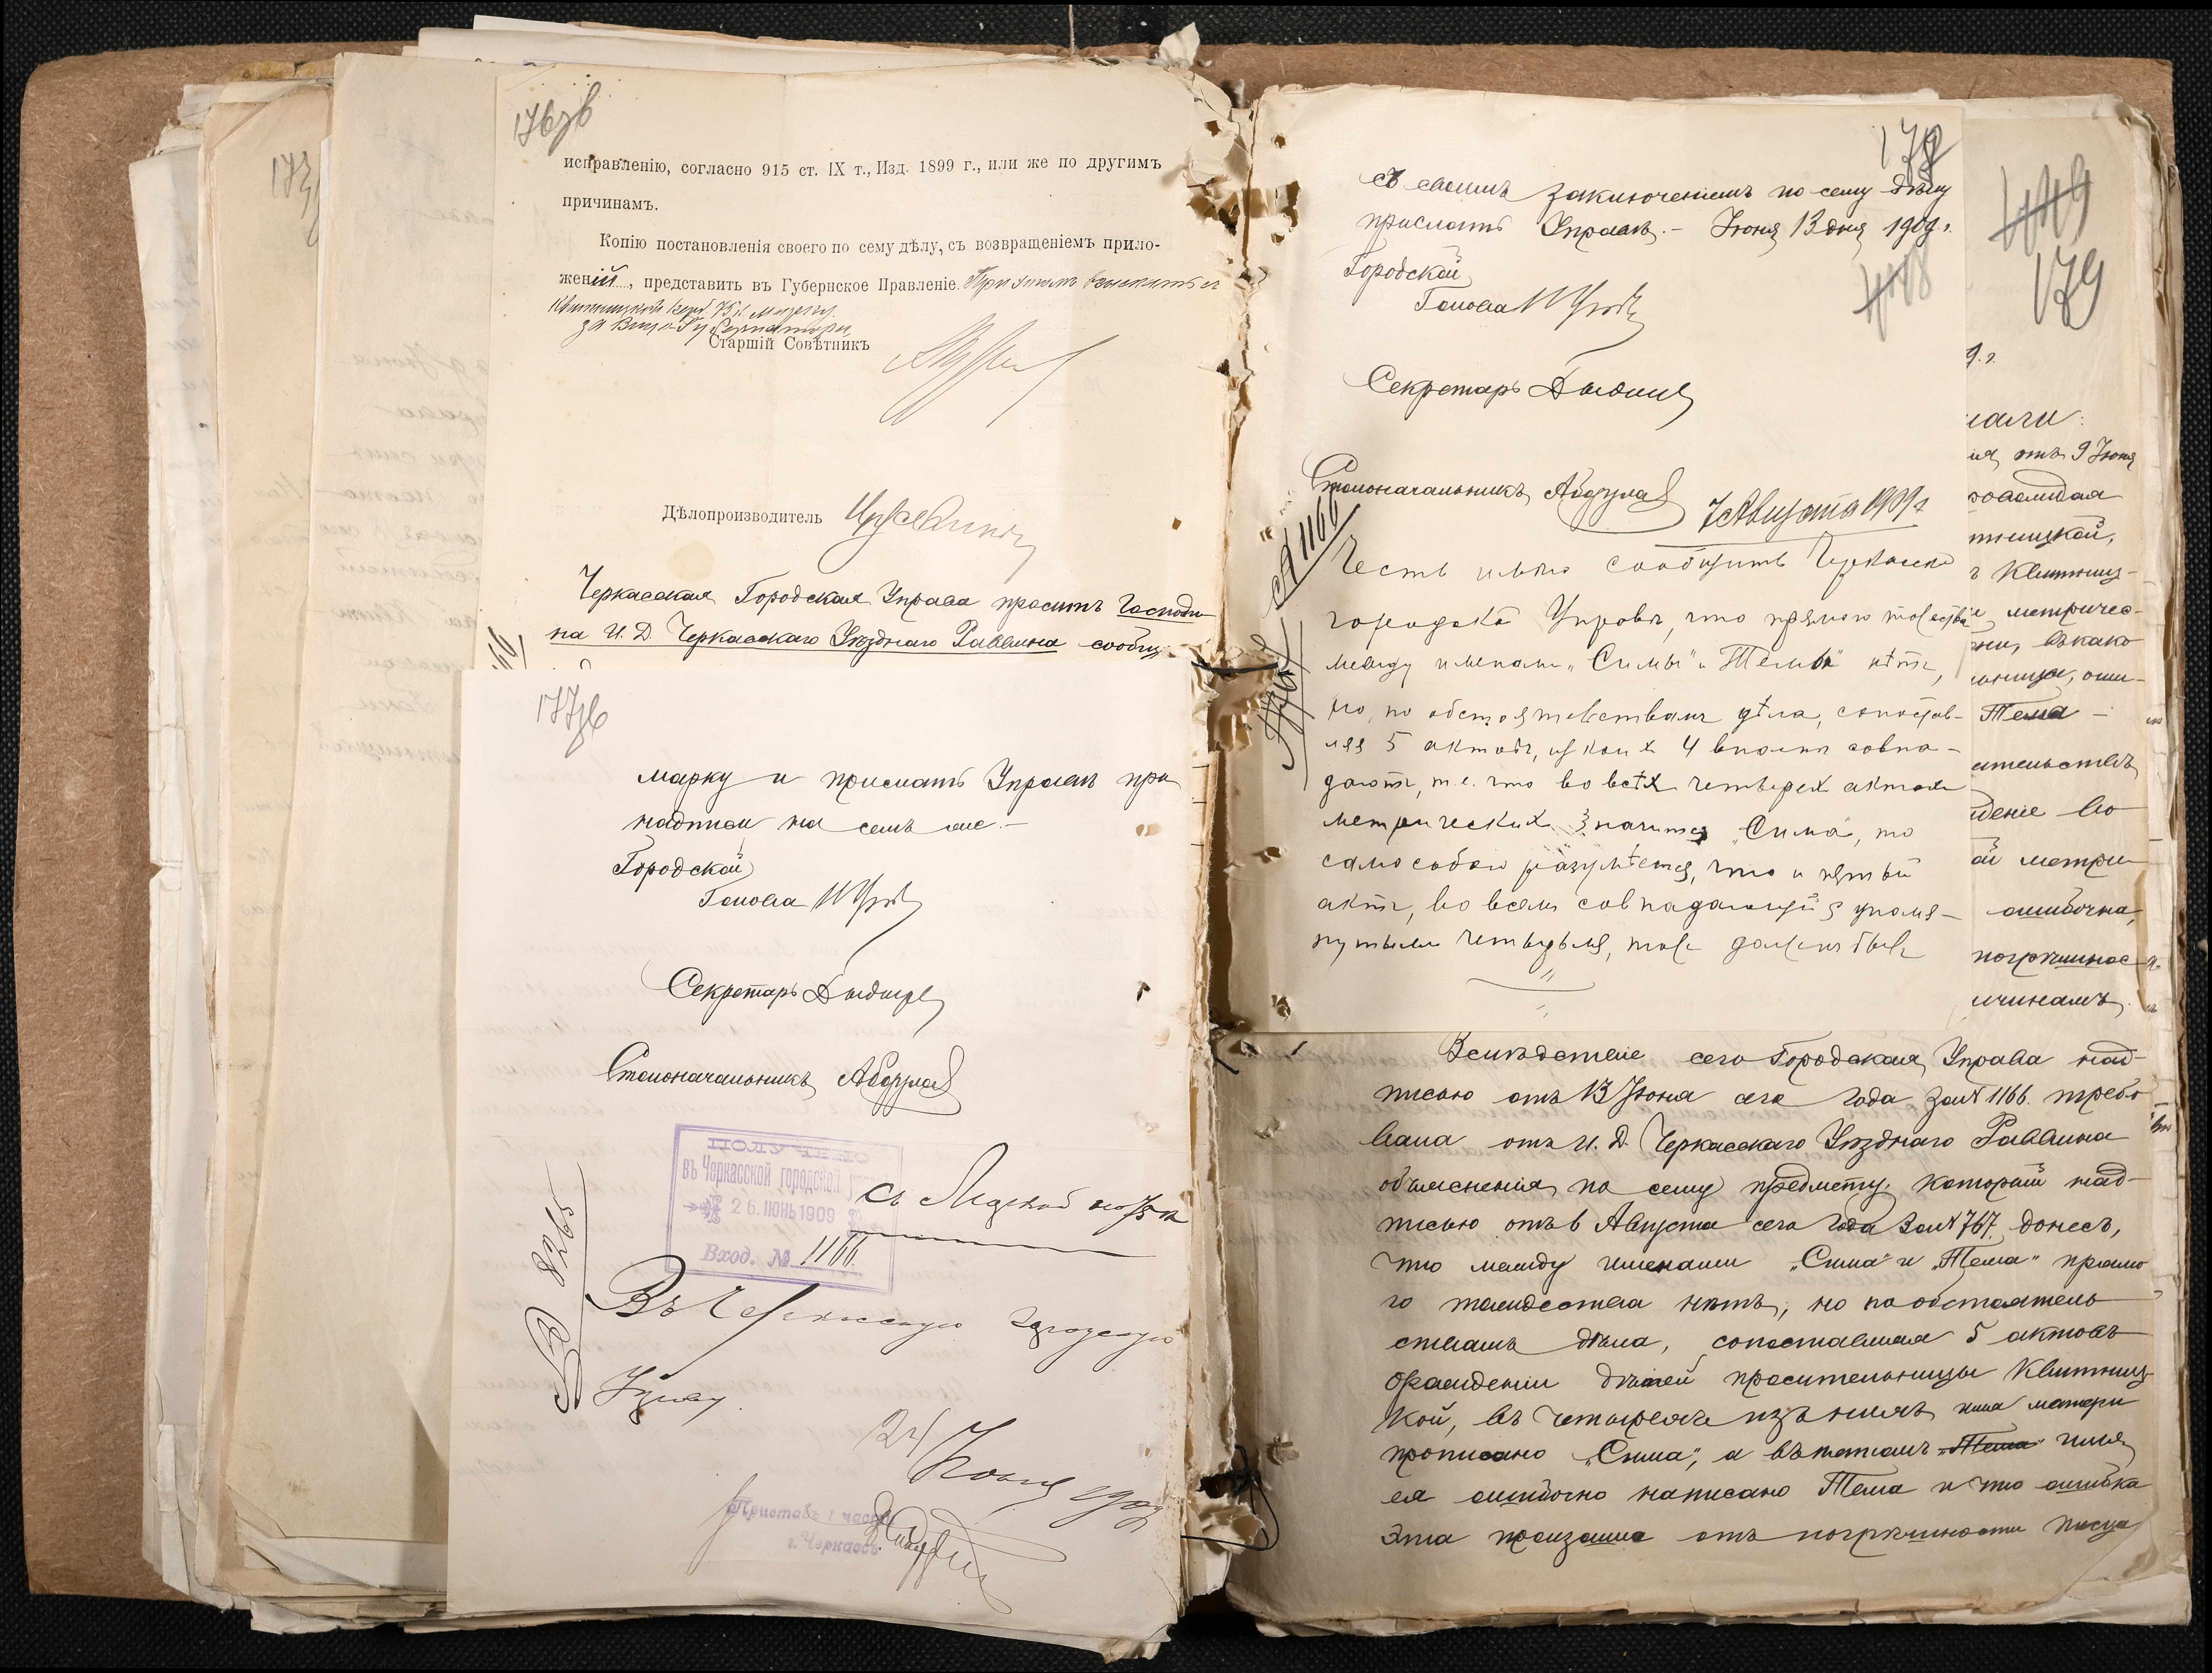 173
176зв
исправленію, согласно 915 ст. IX т., Изд. 1899 г., или же по другимъ
причинамъ.
Копію постановленія своего по сему дѣлу, съ возвращеніемъ прило-
женій, представить въ Губернское Правленіе. При этомъ взыскать съ
Квитницкой 75 к. марку.
За Вице-Губернатора
Старшій Совѣтникъ
Дѣлопроизводитель
Черкасская Городская Управа проситъ Господи-
на И. Д. Черкасскаго Уѣзднаго Раввина сообщ.
177зв
марку и прислать Управѣ при
надписи на семъ же.-
Городской
Голова
Секретарь
Столоначальникъ
ПОЛУЧЕНО
въ Черкасской городской
26. ІЮНЬ 1909
Вход. № 1166.
№ 8265
Въ Черкасскую городскую
Управу.
24 Іюня 1909
Приставъ 1 части
г. Черкассъ
178
съ своимъ заключеніемъ по сему дѣлу
прислать Управѣ.- Іюня 13 дня 1909 г.
Городской
Голова
Секретарь
Столоначальникъ
№ 1166
7 Августа 1909 г
Честь имѣю сообщить Черкасск
городской Управѣ, что прямого тождества
между именами „Симы" и „Темы" нѣтъ,
но, по обстоятельствамъ дѣла, сопостав-
ляя 5 актовъ, изъ коихъ 4 вполнѣ совпа-
даютъ, т.е. что во всѣхъ четырехъ актахъ
метрическихъ значится „Сима", то
само собою разумѣется, что и пятый
актъ, во всемъ совпадающій съ упомя-
нутыми четырьмя, тоже долженъ быть
179
9. г.
іали:
ія отъ 9 Іюня
тницкой,
Квитниц-
метричес-
Тема -
деніе во
ой метри
ошибочна,
погрѣшнос
ичинамъ.
Вслѣдствіе сего Городская Управа над-
писью отъ 13 Іюня сего года за № 1166 требо
вала отъ И. Д. Черкасскаго Уѣзднаго Раввина
объясненія по сему предмету, который над-
писью отъ 6 Августа сего года за № 767 донесъ,
что между именами „Сима" и „Тема" прямо
го тождества нѣтъ, но по обстоятель
ствамъ дѣла, сопоставляя 5 актовъ
о рожденіи дѣтей просительницы Квитниц-
кой, въ четырехъ изъ нихъ имя матери
прописано „Сима", а въ пятомъ „Тема" имя
ея ошибочно написано Тема и что ошибка
эта произошла отъ погрѣшности писца